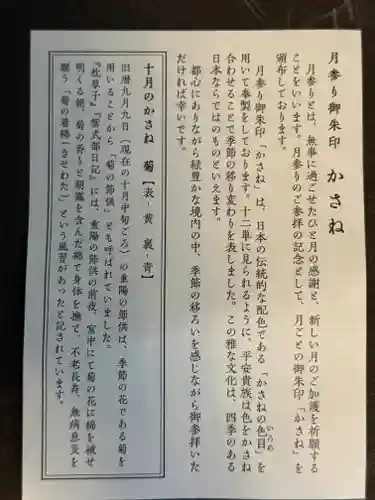 月参り御朱印 かさね
月参りとは、無事に過ごせたひと月の感謝と、新しい月のご加護を祈願する
ことをいいます。月参りのご参拝の記念として、月ごとの御朱印「かさね」を
頒布しております。
月参り御朱印「かさね」は、日本の伝統的な配色である「かさねの色目」を
いろめ
用いて奉製をしております。十二単に見られるように、平安貴族は色をかさね
合わせることで季節の移り変わりを表しました。この雅な文化は、四季のある
日本ならではのものといえます。
都心にありながら緑豊かな境内の中、季節の移ろいを感じながら御参拝いた
だければ幸いです。
十月のかさね 菊【表-黄 裏-青】
旧暦九月九日（現在の十月中旬ごろ）の重陽の節供は、季節の花である菊を
用いることから「菊の節供」とも呼ばれていました。
『枕草子』『紫式部日記』には、重陽の節供の前夜、宮中にて菊の花に綿を被せ
明くる朝、菊の香りと朝露を含んだ綿で身体を撫で、不老長寿、無病息災を
願う「菊の着綿（きせわた）」という風習があったと記されています。